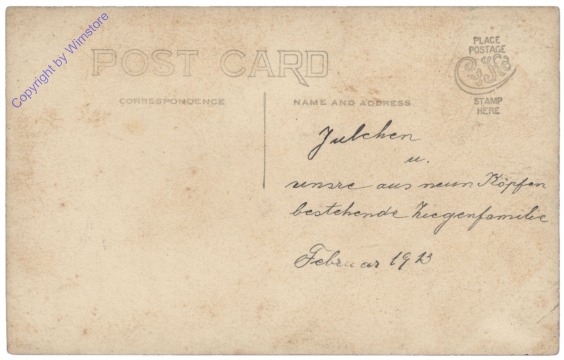 Copyright by Wimstore
POST CARD
PLACE
POSTAGE
STAMP
HERE
CORRESPONDENCE
NAME AND ADDRESS
Julchen
u.
unsre aus neun Köpfen
bestehende Ziegenfamilie
Februar 1913